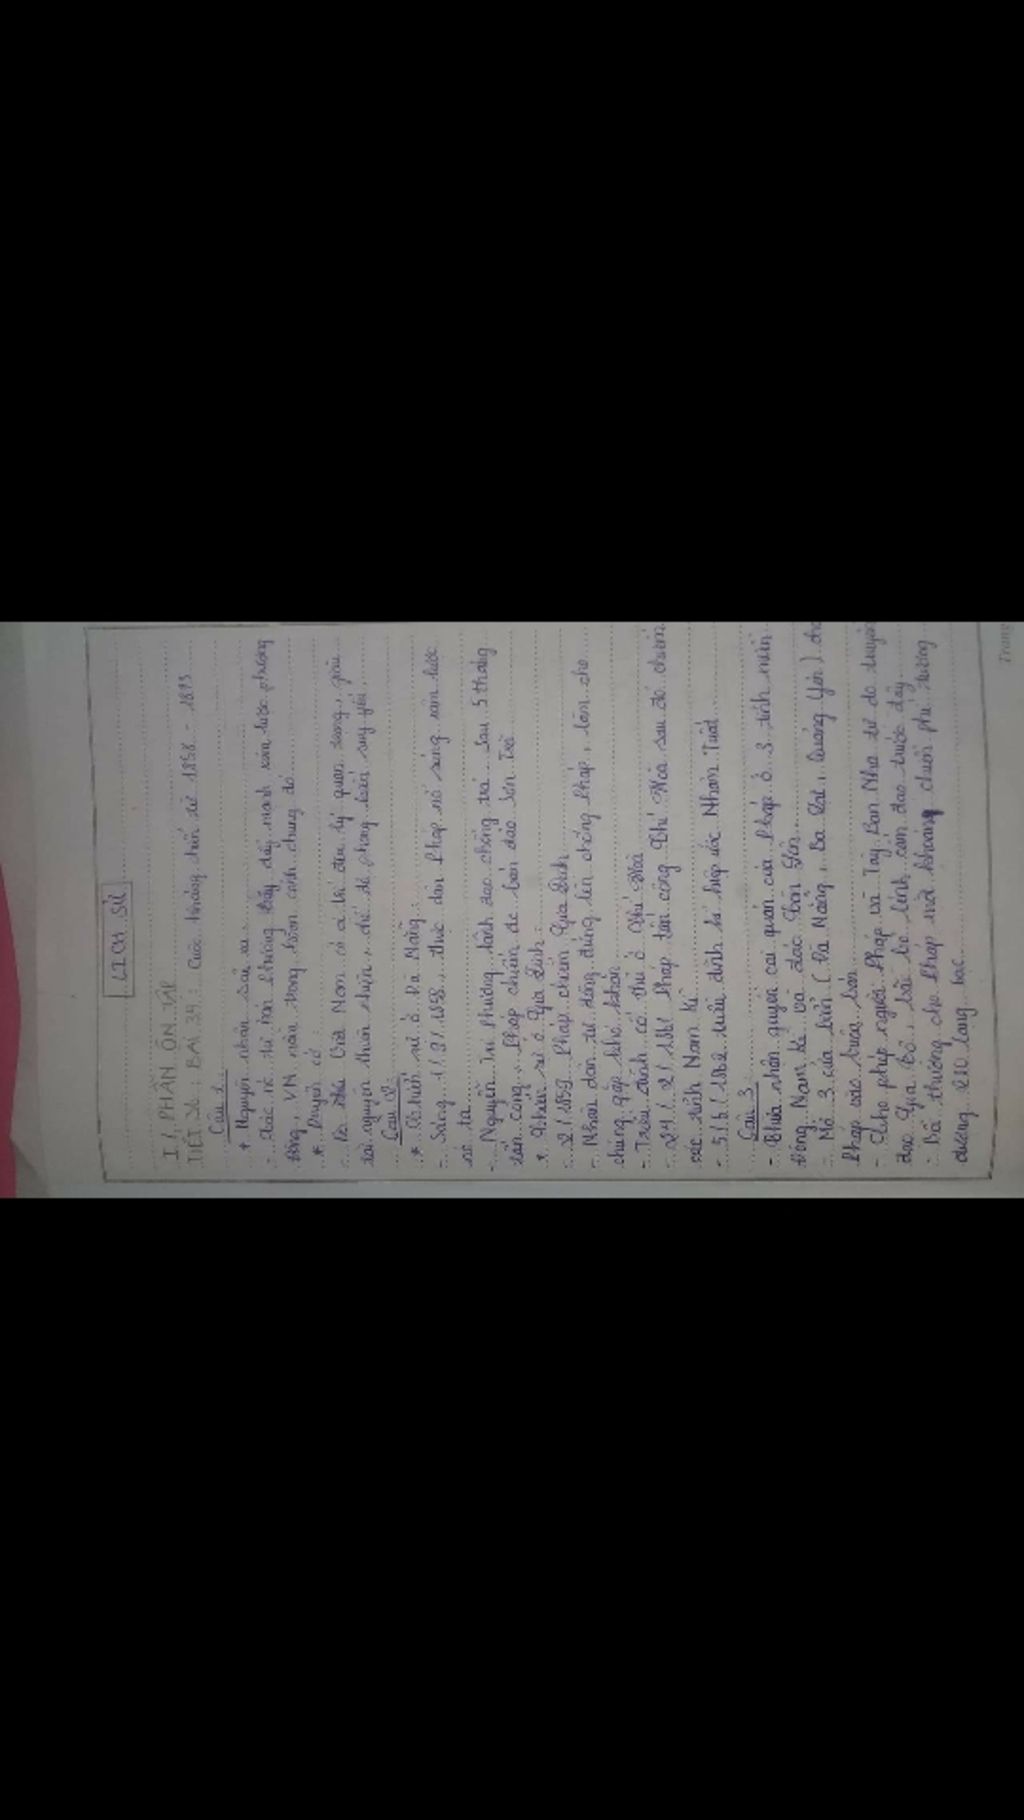 LỊCH SỬ
I / PHẦN ÔN TẬP
TIẾT 36 : BÀI 24 : Cuộc kháng chiến từ 1858 - 1873
Câu 1
* Nguyên nhân sâu xa :
- các nc tư bản phương Tây đẩy mạnh xâm lược phương
Đông, VN nằm trong hoàn cảnh chung đó
* Duyên cớ :
Việt Nam có vị trí địa lý quan trọng, giàu
tài nguyên thiên nhiên, chế độ phong kiến suy yếu
Câu 2
* Chiến sự ở Đà Nẵng :
- Sáng 1/9/1858, thực dân Pháp nổ súng xâm lược
nc ta
- Nguyễn Tri Phương lãnh đạo chống trả. Sau 5 tháng
tấn công, Pháp chiếm đc bán đảo Sơn Trà
* Chiến sự ở Gia Định :
- 2/1859 Pháp chiếm Gia Định
- Nhân dân tự động đứng lên chống Pháp, làm cho
chúng gặp khó khăn
- Triều đình cố thủ ở Chí Hoà
- 24/2/1861 Pháp tấn công Chí Hoà sau đó chiếm
các tỉnh Nam Kì
- 5/6/1862 triều đình kí hiệp ước Nhâm Tuất
Câu 3
- Thừa nhận quyền cai quản của Pháp ở 3 tỉnh miền
Đông Nam Kì và đảo Côn Lôn
- Mở 3 cửa biển ( Đà Nẵng, Ba Lạt, Quảng Yên ) cho
Pháp vào buôn bán
- Cho phép người Pháp và Tây Ban Nha tự do truyền
đạo Gia Tô, bãi bỏ lệnh cấm đạo trước đây
- Bồi thường cho Pháp một khoảng chiến phí tương
đương 280 lạng bạc
Trang